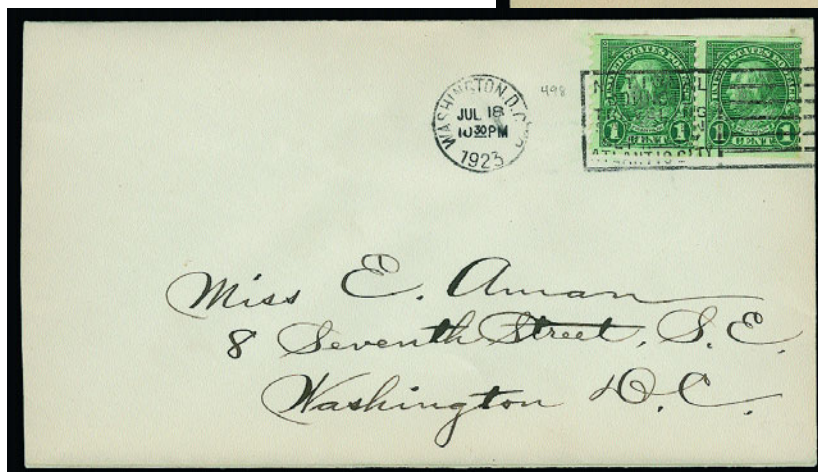 WASHINGTON, D.C.
JUL 18
10 30 PM
1923
498
UNITED STATES POSTAGE UNITED STATES POSTAGE
1 CENT 1 1 CENT 1
ATLANTIC CITY
Miss E. Aman
8 Seventh Street, S.E.
Washington D.C.